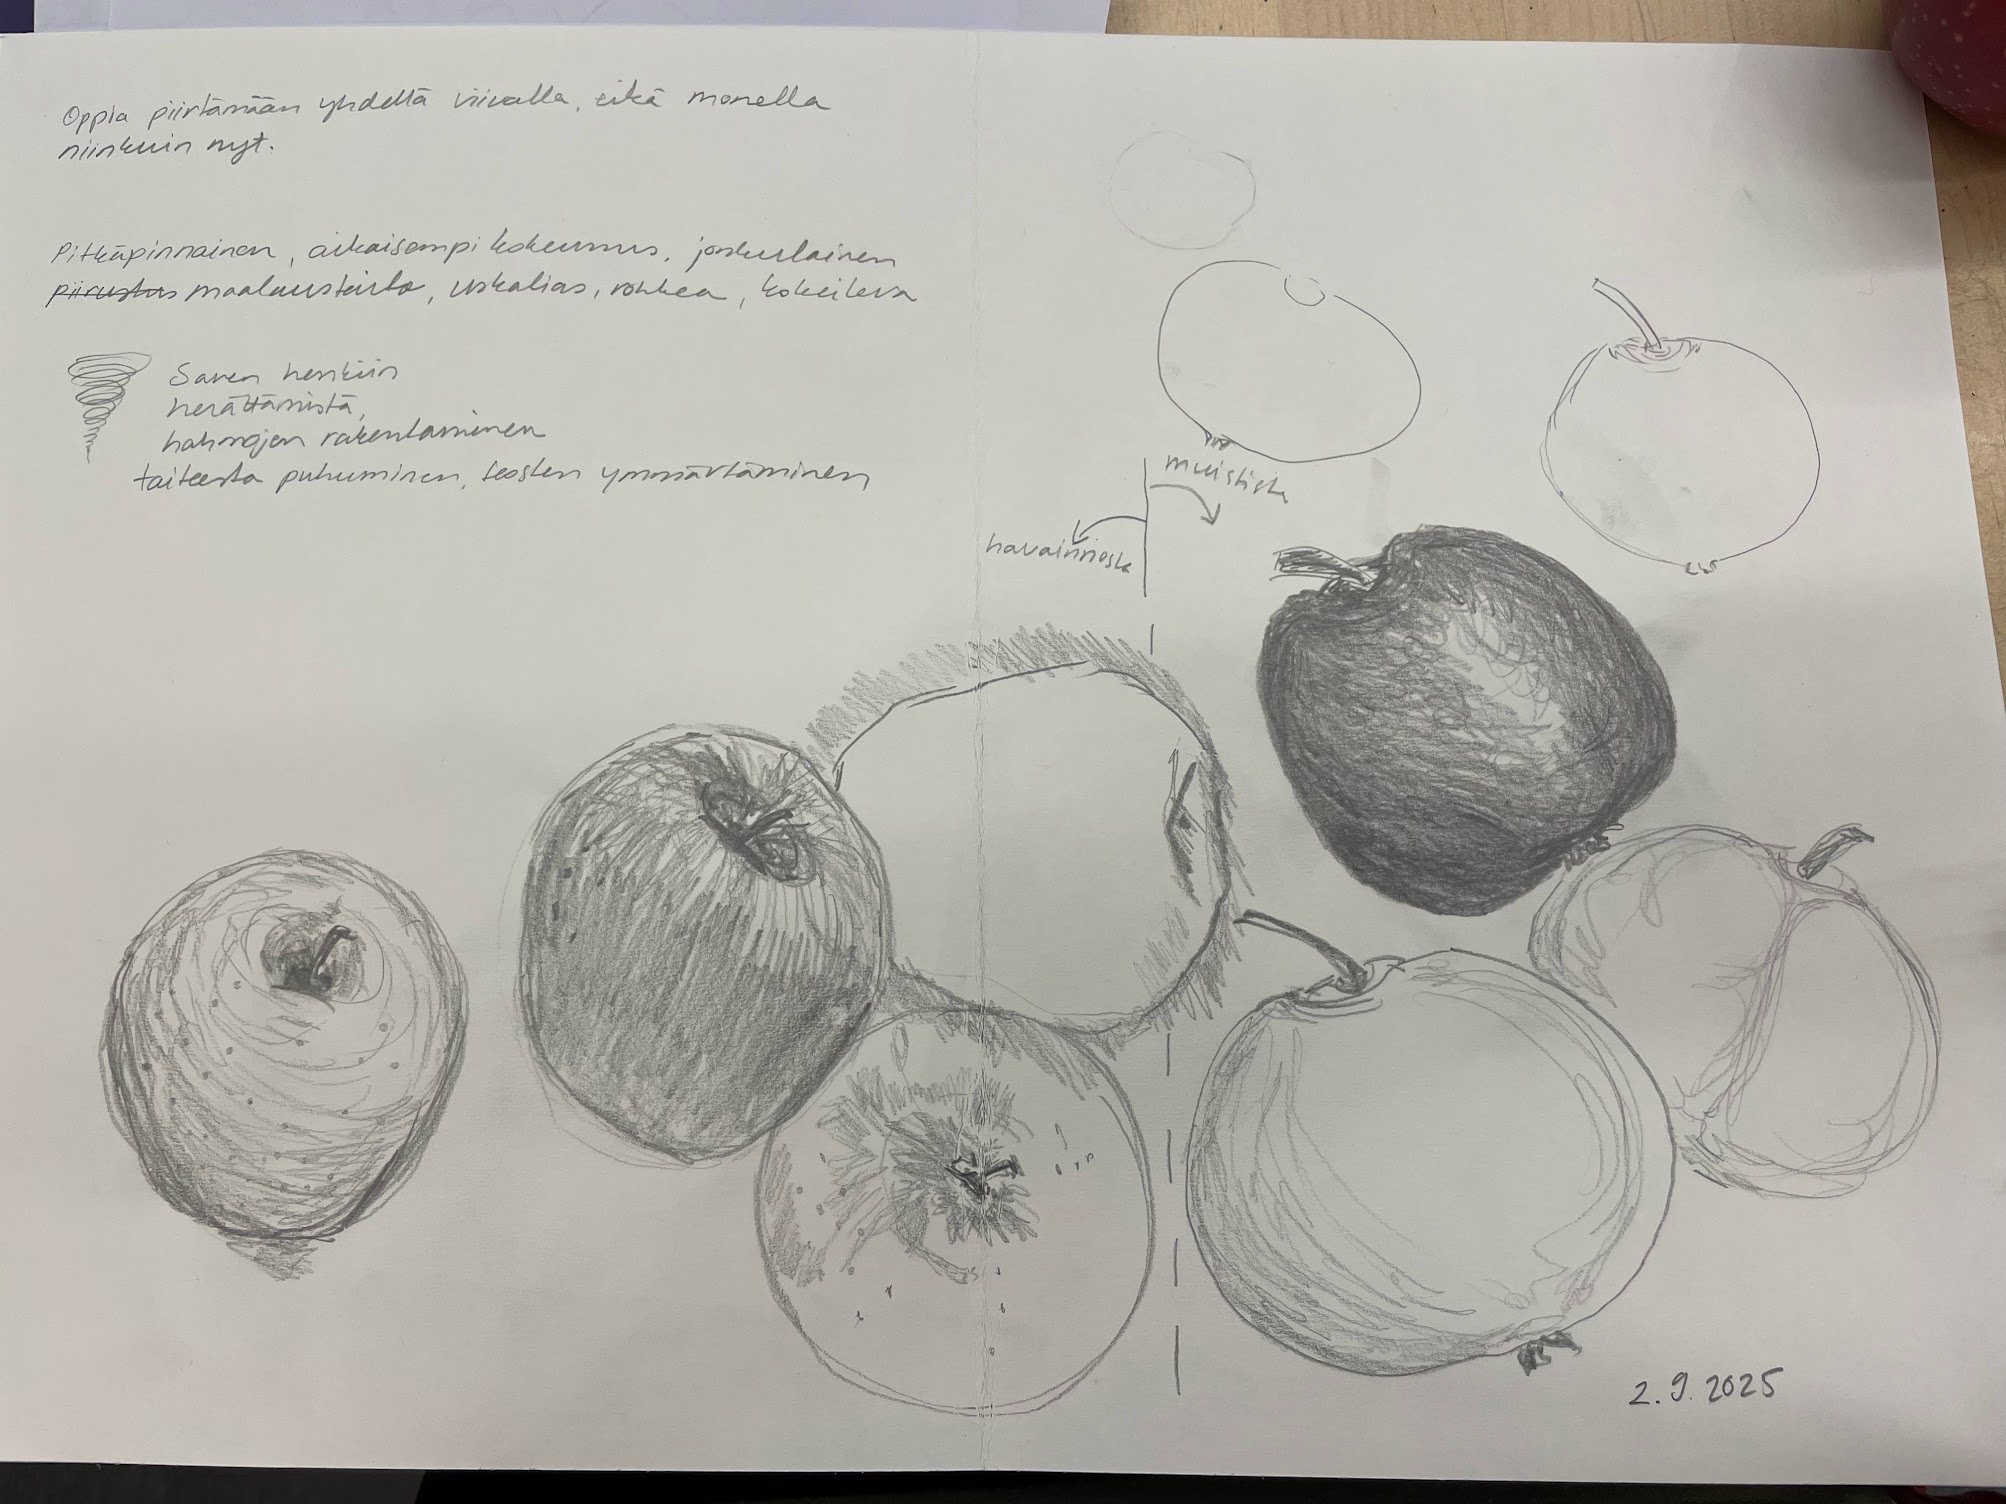 Oppia piirtämään yhdellä viivalla, eikä monella
niinkuin nyt.
Pitkäpinnainen, aikaisempi kokemus, jonkunlainen
piirustus maalaustaito, uskalias, rohkea, kokeileva
Saven henkiin
herättämistä,
hahmojen rakentaminen
taiteesta puhuminen, teosten ymmärtäminen
muistista
havainnosta
2.9.2025